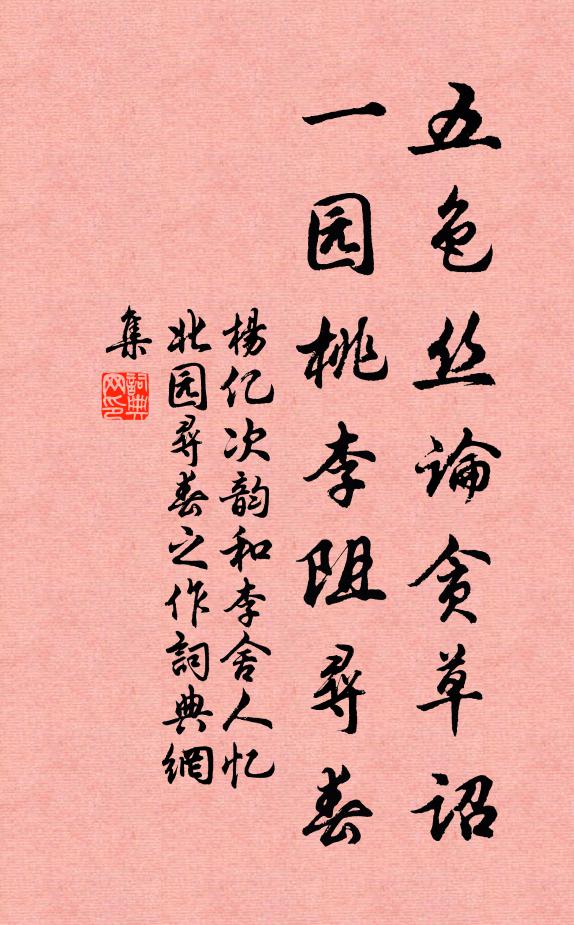 五色丝論贪草诏
一园桃李阻尋春
楊亿次韵和李舍人忆
北园尋春之作詞典網
集
詞典
网印